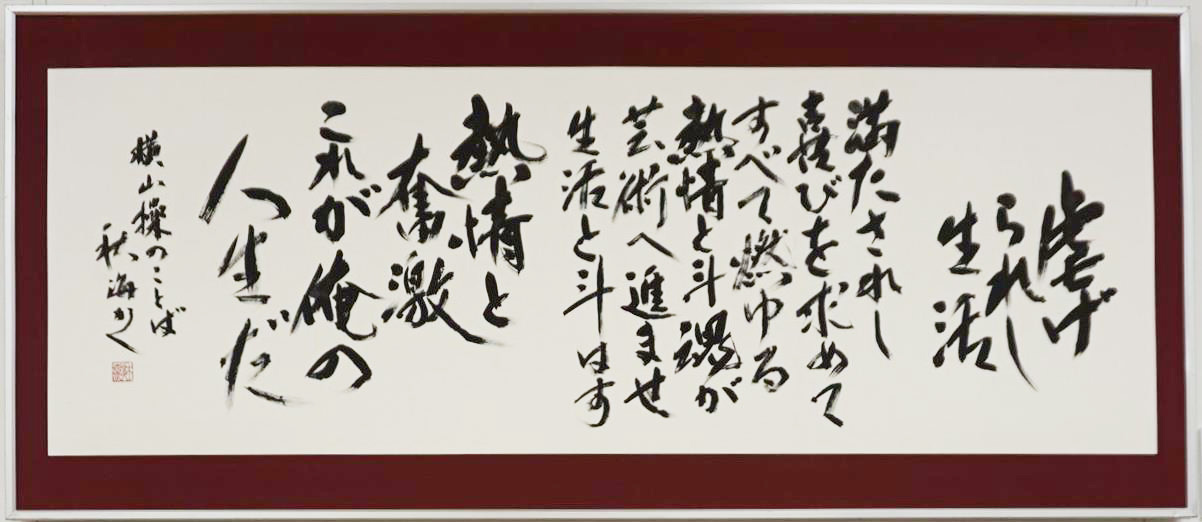 虐げ
られし
生活
満たされし
喜びを求めて
すべて燃ゆる
熱情と斗魂が
芸術へ進ませ
生活と斗はす
熱情と
奮激
これが俺の
人生だ
横山操のことば
秋海かく